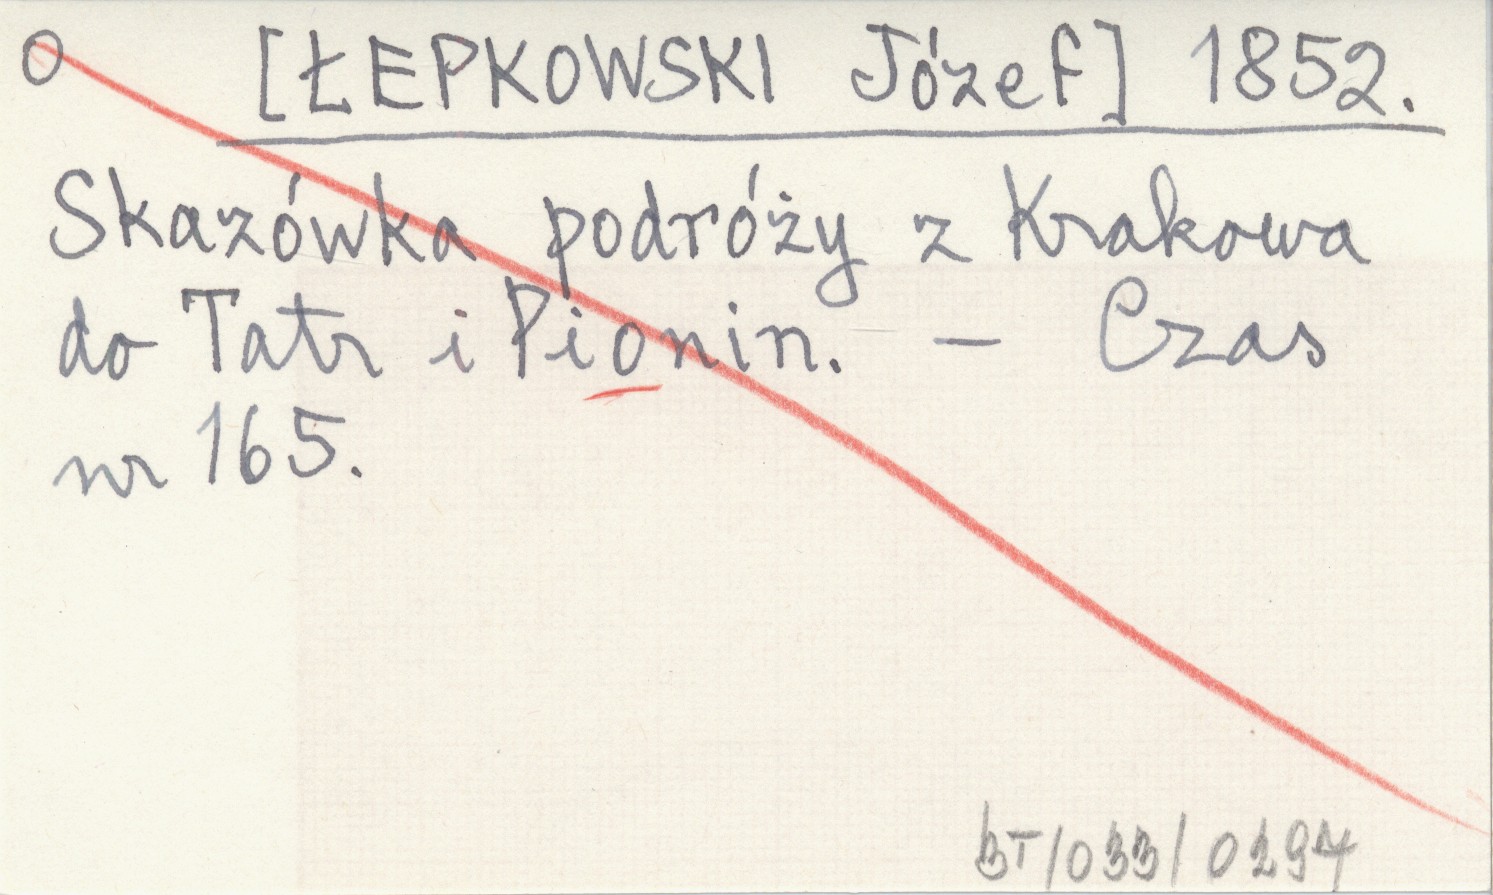 O [ŁEPKOWSKI Józef] 1852.
Skazówka podróży z Krakowa
do Tatr i Pionin. – Czas
nr 165.
BT/033/0294